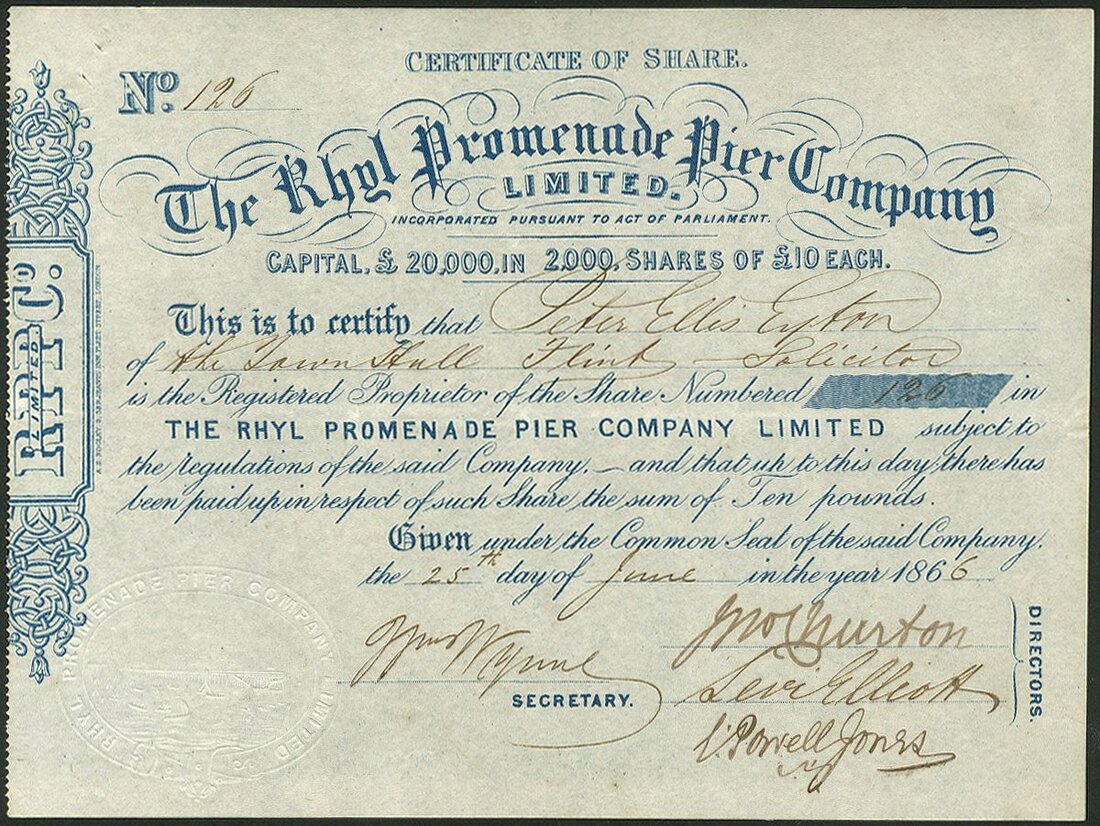 CERTIFICATE OF SHARE.
No. 126
The Rhyl Promenade Pier Company
LIMITED.
INCORPORATED PURSUANT TO ACT OF PARLIAMENT.
CAPITAL, £ 20,000, IN 2,000, SHARES OF £10 EACH.
This is to certify that Peter Ellis Eyton
of the Town Hall Flint — Solicitor
is the Registered Proprietor of the Share Numbered 126 in
THE RHYL PROMENADE PIER COMPANY LIMITED subject to
the regulations of the said Company, — and that up to this day there has
been paid up in respect of such Share the sum of Ten pounds.
Given under the Common Seal of the said Company,
the 25th day of June in the year 1866
Wynne
SECRETARY.
Jno Churton
Levi Elliott
Powell Jones
DIRECTORS.
R P P Co.
LIMITED
RHYL PROMENADE PIER COMPANY LIMITED